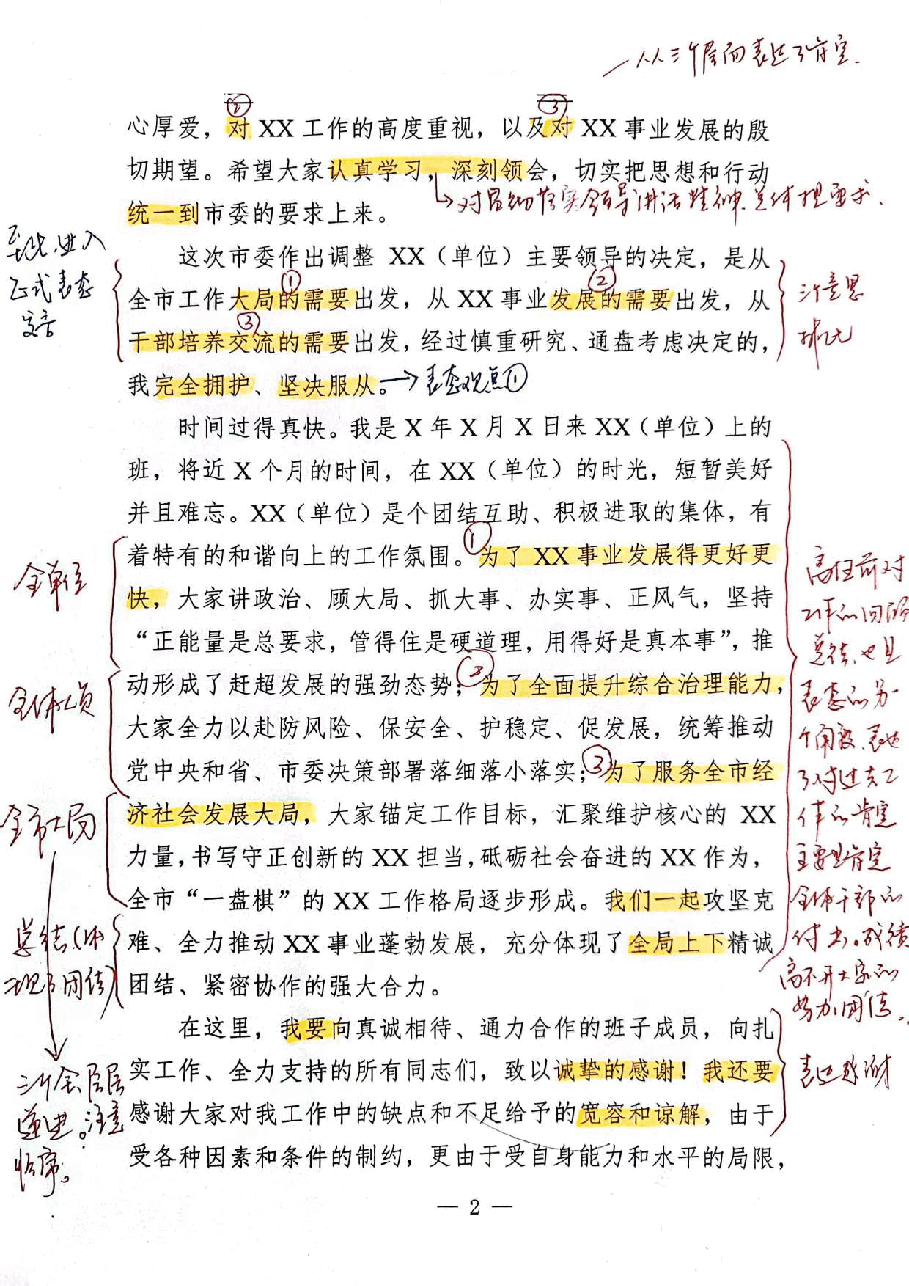 从三个层面表达了肯定
② ③
心厚爱，对 XX 工作的高度重视，以及对 XX 事业发展的殷
切期望。希望大家认真学习，深刻领会，切实把思想和行动
统一到市委的要求上来。
这次市委作出调整 XX（单位）主要领导的决定，是从
全市工作大局的需要出发，从 XX 事业发展的需要出发，从
① ② ③
干部培养交流的需要出发，经过慎重研究、通盘考虑决定的，
我完全拥护、坚决服从。→表态观点①
进入
正式表态
发言
三个意思
时间过得真快。我是 X 年 X 月 X 日来 XX（单位）上的
班，将近 X 个月的时间，在 XX（单位）的时光，短暂美好
并且难忘。XX（单位）是个团结互助、积极进取的集体，有
着特有的和谐向上的工作氛围。①为了 XX 事业发展得更好更
快，大家讲政治、顾大局、抓大事、办实事、正风气，坚持
“正能量是总要求，管得住是硬道理，用得好是真本事”，推
动形成了赶超发展的强劲态势；②为了全面提升综合治理能力，
大家全力以赴防风险、保安全、护稳定、促发展，统筹推动
党中央和省、市委决策部署落细落小落实；③为了服务全市经
济社会发展大局，大家锚定工作目标，汇聚维护核心的 XX
力量，书写守正创新的 XX 担当，砥砺社会奋进的 XX 作为，
全市“一盘棋”的 XX 工作格局逐步形成。我们一起攻坚克
难、全力推动 XX 事业蓬勃发展，充分体现了全局上下精诚
团结、紧密协作的强大合力。
全单位
全体人员
全市大局
总结（体
现了团结）
三个全层层
递进。注意
顺序。
离任前对
工作的回顾
总结，也是
表态的另一
个角度，表达
了对过去工
作的肯定
主要是肯定
全体干部的
付出。成绩
离不开大家的
努力、团结。
在这里，我要向真诚相待、通力合作的班子成员，向扎
实工作、全力支持的所有同志们，致以诚挚的感谢！我还要
感谢大家对我工作中的缺点和不足给予的宽容和谅解，由于
受各种因素和条件的制约，更由于受自身能力和水平的局限，
表达感谢
— 2 —